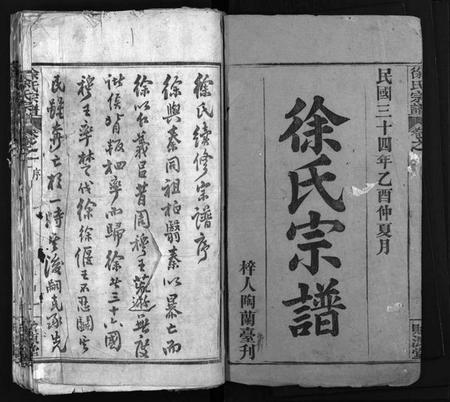 民國三十四年乙酉仲夏月
徐氏宗譜
梓人陶蘭臺刊
徐氏續修宗譜序
徐與秦同祖栢翳秦以暴亡而
徐以仁義昌昔周穆王遨遊無度
諸侯皆叛相率而歸徐者三十六國
穆王率楚伐徐徐偃王不忍鬭其
民雖奔亡於一時其後嗣克承先
徐氏宗譜
卷之一
序